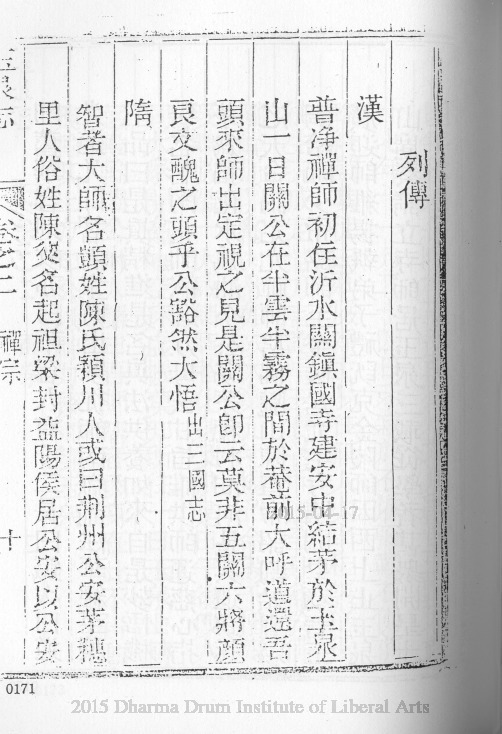 列傳
漢
普净禪師初住沂水關鎮國寺建安中結茅於玉泉
山一日關公在半雲半霧之間於菴前大呼道還吾
頭來師出定視之見是關公卽云莫非五關六將顔
良文醜之頭乎公豁然大悟出三國志
隋
智者大師名顗姓陳氏頴川人或曰荆州公安茅穗
里人俗姓陳父名起祖梁封益陽侯居公安以公安
玉泉志
卷之二
禪宗
十
2015-04-17
0171
2015 Dharma Drum Institute of Liberal Arts